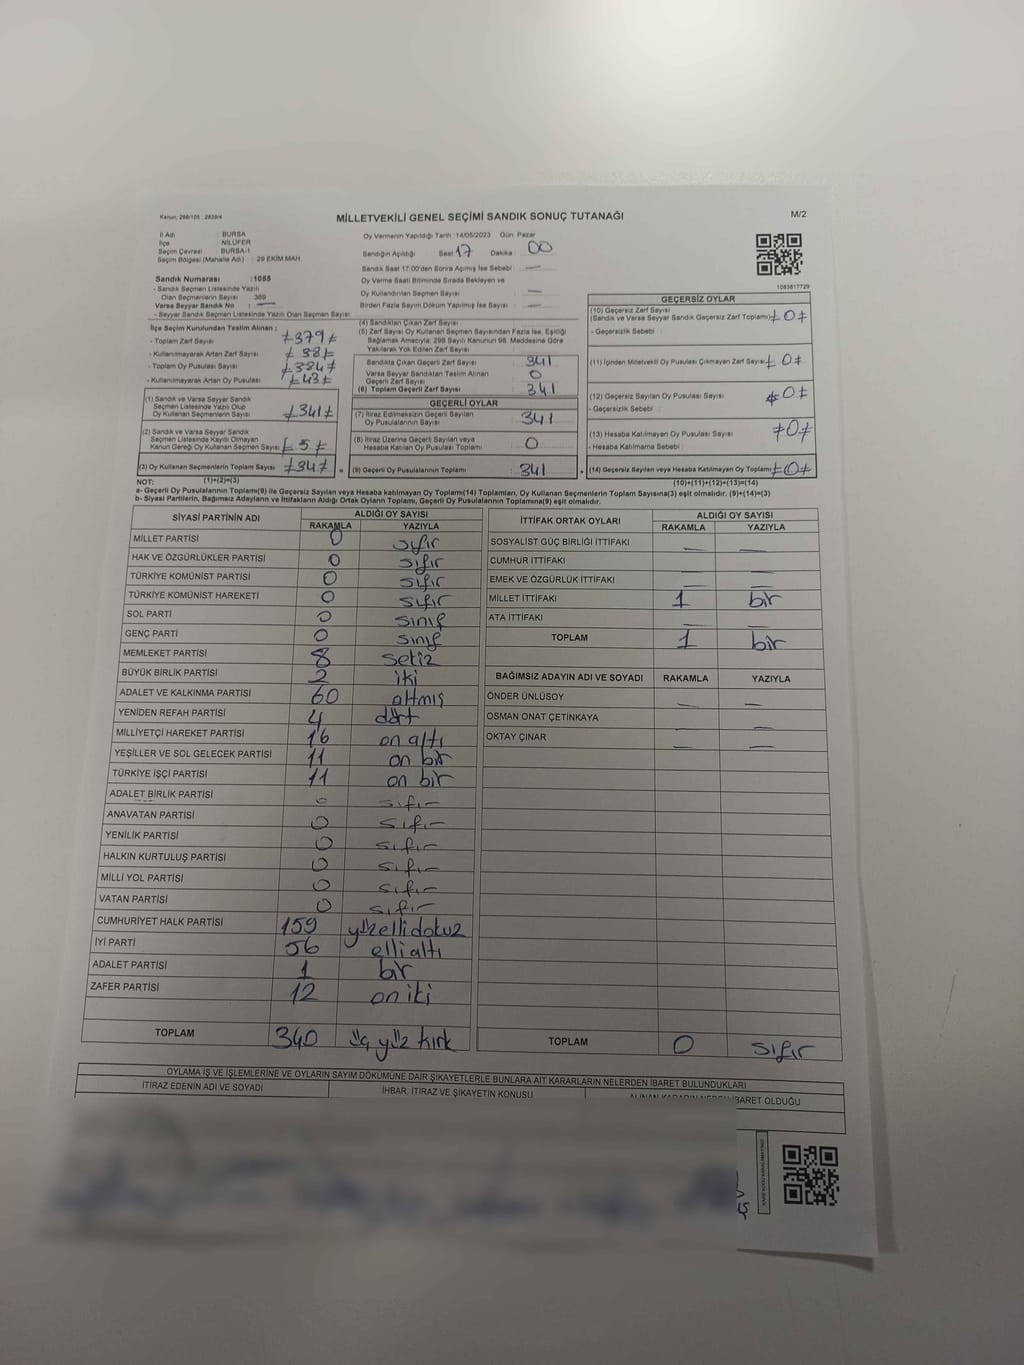 Kanun, 298/105 : 2839/4
MİLLETVEKİLİ GENEL SEÇİMİ SANDIK SONUÇ TUTANAĞI
M/2
İl Adı : BURSA
İlçe : NİLÜFER
Seçim Çevresi : BURSA-1
Seçim Bölgesi (Mahalle Adı) : 29 EKİM MAH.
Sandık Numarası : 1055
- Sandık Seçmen Listesinde Yazılı
Olan Seçmenlerin Sayısı : 369
Varsa Seyyar Sandık No : —
- Seyyar Sandık Seçmen Listesinde Yazılı Olan Seçmen Sayısı:
Oy Vermenin Yapıldığı Tarih :14/05/2023 Gün Pazar
Sandığın Açıldığı Saat 17 Dakika 00
Sandık Saat 17:00'den Sonra Açılmış İse Sebebi : —
Oy Verme Saati Bitiminde Sırada Bekleyen ve
Oy Kullandırılan Seçmen Sayısı : —
Birden Fazla Sayım Döküm Yapılmış İse Sayısı : —
1083817729
İlçe Seçim Kurulundan Teslim Alınan ;
- Toplam Zarf Sayısı : ≠379≠
- Kullanılmayarak Artan Zarf Sayısı : ≠38≠
- Toplam Oy Pusulası Sayısı : ≠384≠
- Kullanılmayarak Artan Oy Pusulası : ≠43≠
(1) Sandık ve Varsa Seyyar Sandık
Seçmen Listesinde Yazılı Olup
Oy Kullanan Seçmenlerin Sayısı : ≠341≠
(2) Sandık ve Varsa Seyyar Sandık
Seçmen Listesinde Kayıtlı Olmayan
Kanun Gereği Oy Kullanan Seçmen Sayısı : ≠5≠
(3) Oy Kullanan Seçmenlerin Toplam Sayısı : ≠347≠
(1)+(2)=(3)
(4) Sandıktan Çıkan Zarf Sayısı
(5) Zarf Sayısı Oy Kullanan Seçmen Sayısından Fazla İse, Eşitliği
Bağlamak Amacıyla; 298 Sayılı Kanunun 98. Maddesine Göre
Yakılarak Yok Edilen Zarf Sayısı :
Sandıkta Çıkan Geçerli Zarf Sayısı : 341
Varsa Seyyar Sandıktan Teslim Alınan
Geçerli Zarf Sayısı : 0
(6) Toplam Geçerli Zarf Sayısı : 341
GEÇERLİ OYLAR
(7) İtiraz Edilmeksizin Geçerli Sayılan
Oy Pusulalarının Sayısı : 341
(8) İtiraz Üzerine Geçerli Sayılan veya
Hesaba Katılan Oy Pusulalarının Toplamı : 0
= (9) Geçerli Oy Pusulalarının Toplamı : 341
GEÇERSİZ OYLAR
(10) Geçersiz Zarf Sayısı
(Sandık ve Varsa Seyyar Sandık Geçersiz Zarf Toplamı) : ≠0≠
- Geçersizlik Sebebi :
(11) İçinden Milletvekili Oy Pusulası Çıkmayan Zarf Sayısı : ≠0≠
(12) Geçersiz Sayılan Oy Pusulası Sayısı : ≠0≠
- Geçersizlik Sebebi :
(13) Hesaba Katılmayan Oy Pusulası Sayısı : ≠0≠
- Hesaba Katılmama Sebebi :
+ (14) Geçersiz Sayılan veya Hesaba Katılmayan Oy Toplamı : ≠0≠
(10)+(11)+(12)+(13)=(14)
NOT:
a- Geçerli Oy Pusulalarının Toplamı(9) ile Geçersiz Sayılan veya Hesaba katılmayan Oy Toplamı(14) Toplamları, Oy Kullanan Seçmenlerin Toplam Sayısına(3) eşit olmalıdır. (9)+(14)=(3)
b- Siyasi Partilerin, Bağımsız Adayların ve İttifakların Aldığı Ortak Oyların Toplamı, Geçerli Oy Pusulalarının Toplamına(9) eşit olmalıdır.
SİYASİ PARTİNİN ADI ALDIĞI OY SAYISI
RAKAMLA YAZIYLA
MİLLET PARTİSİ 0 sıfır
HAK VE ÖZGÜRLÜKLER PARTİSİ 0 sıfır
TÜRKİYE KOMÜNİST PARTİSİ 0 sıfır
TÜRKİYE KOMÜNİST HAREKETİ 0 sıfır
SOL PARTİ 0 sınıf
GENÇ PARTİ 0 sınıf
MEMLEKET PARTİSİ 8 sekiz
BÜYÜK BİRLİK PARTİSİ 2 iki
ADALET VE KALKINMA PARTİSİ 60 altmış
YENİDEN REFAH PARTİSİ 4 dört
MİLLİYETÇİ HAREKET PARTİSİ 16 on altı
YEŞİLLER VE SOL GELECEK PARTİSİ 11 on bir
TÜRKİYE İŞÇİ PARTİSİ 11 on bir
ADALET BİRLİK PARTİSİ 0 sıfır
ANAVATAN PARTİSİ 0 sıfır
YENİLİK PARTİSİ 0 sıfır
HALKIN KURTULUŞ PARTİSİ 0 sıfır
MİLLİ YOL PARTİSİ 0 sıfır
VATAN PARTİSİ 0 sıfır
CUMHURİYET HALK PARTİSİ 159 yüzellidokuz
İYİ PARTİ 56 elli altı
ADALET PARTİSİ 1 bir
ZAFER PARTİSİ 12 on iki
TOPLAM 340 üç yüz kırk
İTTİFAK ORTAK OYLARI ALDIĞI OY SAYISI
RAKAMLA YAZIYLA
SOSYALİST GÜÇ BİRLİĞİ İTTİFAKI — —
CUMHUR İTTİFAKI — —
EMEK VE ÖZGÜRLÜK İTTİFAKI — —
MİLLET İTTİFAKI 1 bir
ATA İTTİFAKI — —
TOPLAM 1 bir
BAĞIMSIZ ADAYIN ADI VE SOYADI RAKAMLA YAZIYLA
ÖNDER ÜNLÜSOY — —
OSMAN ONAT ÇETİNKAYA — —
OKTAY ÇINAR — —
TOPLAM 0 sıfır
OYLAMA İŞ VE İŞLEMLERİNE VE OYLARIN SAYIM DÖKÜMÜNE DAİR ŞİKAYETLERLE BUNLARA AİT KARARLARIN NELERDEN İBARET BULUNDUKLARI
İTİRAZ EDENİN ADI VE SOYADI İHBAR, İTİRAZ VE ŞİKAYETİN KONUSU ALINAN KARARIN NEDEN İBARET OLDUĞU